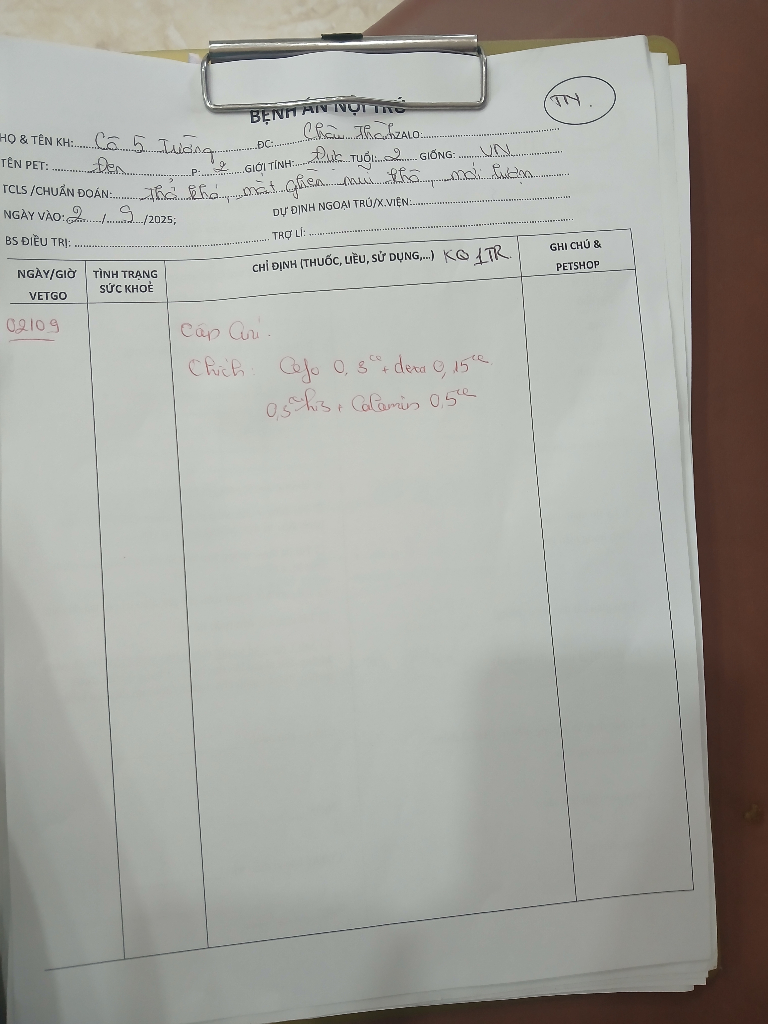 BỆNH ÁN NỘI TRÚ
TTY.
HỌ & TÊN KH: Cô 5 Tưởng ĐC: Châu Thành ZALO:
TÊN PET: Đen P: 2 GIỚI TÍNH: Đực TUỔI: 2 GIỐNG: VN
TCLS /CHUẨN ĐOÁN: Thở khó, mắt ghèn mũi khô, mới lượm
NGÀY VÀO: 2 / 9 /2025; DỰ ĐỊNH NGOẠI TRÚ/X.VIỆN:
BS ĐIỀU TRỊ: TRỢ LÍ:
NGÀY/GIỜ VETGO
TÌNH TRẠNG SỨC KHOẺ
CHỈ ĐỊNH (THUỐC, LIỀU, SỬ DỤNG,...) KQ 1TR.
GHI CHÚ & PETSHOP
02109
Cấp Cứu.
Chích: Cefo 0,3cc + dexa 0,15cc
0,3cc his + Calamin 0.5cc